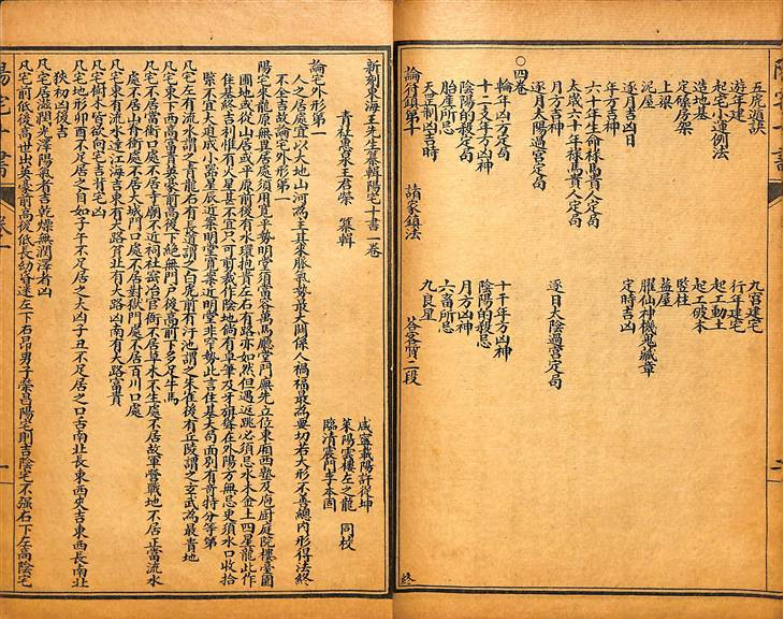 五虎遁訣　九宮建宅
遊年建　行年建宅
起宅小運例法　起工動土
造地基　起工破木
定磉房架　竪柱
上梁　蓋屋
泥屋　臞仙神機鬼藏章
逐月吉凶日　定時吉凶
年方吉神
六十年生命祿馬貴人定局
太歲六十年祿馬貴人定局
月方吉神
逐月太陽過宮定局　逐日太陰過宮定局
○四卷
輪年凶方定局　十干年方凶神
十二支年方凶神　陰陽的殺忌
陰陽的殺定局　月方凶神
胎產所忌　六畜所忌
天罡制凶吉時　九良星
論符鎮第十　諸家鎮法　答客賀二段
終
新刻東海王先生纂輯陽宅十書一卷
咸寧載陽許從坤
青社惠泉王君榮　纂輯　萊陽雲樓左之龍　同校
臨清震門李本固
論宅外形第一
人之居處宜以大地山河為主其來脈氣勢最大關係人禍福最為要切若大形不善總內形得法終
不全吉故論宅外形第一
陽宅來龍原無異居處須用寬平勢明堂須當容萬馬廳堂門廡先立位東廂西塾及庖廚庭院樓臺園
圃地或從山居或平原前後有水環抱貴左右有路亦如然但遇返跳必須忌水木金土四星龍此作
住基終吉利惟有火星甚不宜只可剪裁作陰地倘有卓筆及牙旗聳在外陽方無忌更須水口收拾
緊不宜太迫成小器星辰近案明堂寬案近明堂非窄勢此言住基大局面別有奇特分等第
凡宅左有流水謂之青龍右有長道謂之白虎前有汙池謂之朱雀後有丘陵謂之玄武為最貴地
凡宅東下西高富貴英豪前高後下絕無門戶後高前下多足牛馬
凡宅不居當衝口處不居寺廟不近祠社窑冶官衙不居草木不生處不居故軍營戰地不居正當流水
處不居山脊衝處不居大城門口處不居對獄門處不居百川口處
凡宅東有流水達江海吉東有大路貧北有大路凶南有大路富貴
凡宅樹木皆欲向宅吉背宅凶
凡宅地形卯酉不足居之自如子午不足居之大凶子丑不足居之口舌南北長東西夾吉東西長南北
狹初凶後吉
凡宅居滋潤光澤陽氣者吉乾燥無潤澤者凶
凡宅前低後高世出英豪前高後低長幼昏迷左下右昂男子榮昌陽宅則吉陰宅不强右下左高陰宅
陽宅十書
卷一